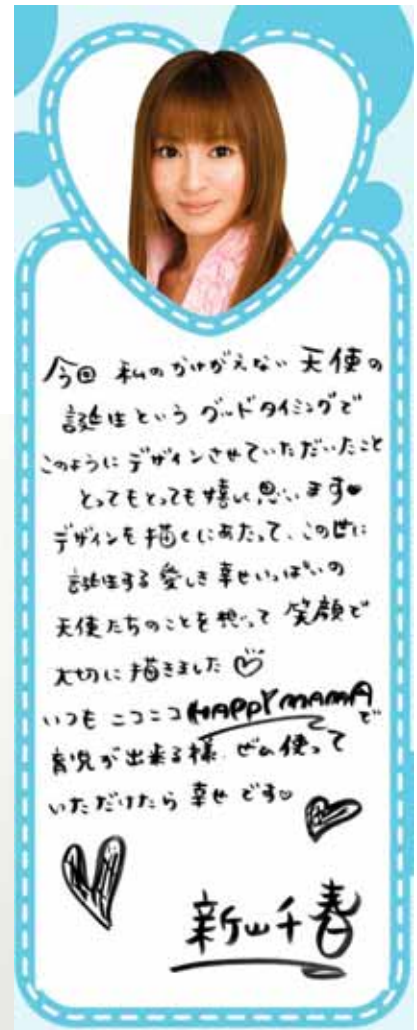 今回 私のかけがえない 天使の
誕生という グッドタイミングで
このように デザインさせていただいたこと
とってもとっても 嬉しく思います♥
デザインを描くにあたって、この世に
誕生する 愛しき 幸せいっぱいの
天使たちのことを想って 笑顔で
大切に描きました♡
いつも ニコニコ HAPPY MAMAで
育児が出来る様、ぜひ使って
いただけたら 幸せ です♡
新山千春